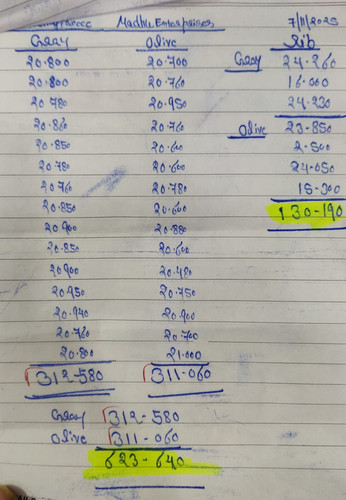 Madhu Enterprises 7/11/2025
Gray Olive Rib
20.800 20.700 Gray 24.260
20.800 20.760 16.000
20.780 20.950 24.230
20.860 20.760 Olive 23.850
20.850 20.600 2.500
20.780 20.600 24.050
20.760 20.780 15.300
20.850 20.600 130-190
20.900 20.880
20.850 20.600
20.900 20.480
20.950 20.750
20.940 20.900
20.760 20.700
20.800 21.000
312-580 311-060
Gray 312-580
Olive 311-060
623-640